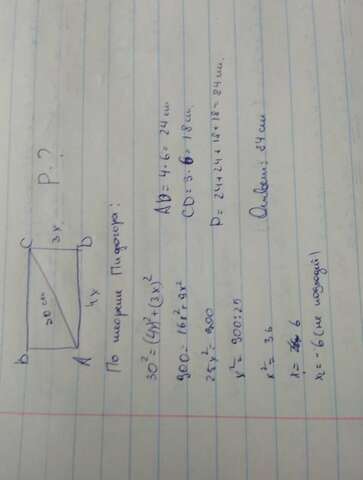 B C
30 см
3x
A D
4x
P-?
По теореме Пифагора:
30² = (4x)² + (3x)²
900 = 16x² + 9x²
25x² = 900
x² = 900:25
x² = 36
x = 6
x₂ = -6 (не подходит)
AD = 4·6 = 24 см
CD = 3·6 = 18 см
P = 24+24+18+18 = 84 см
Ответ: 84 см